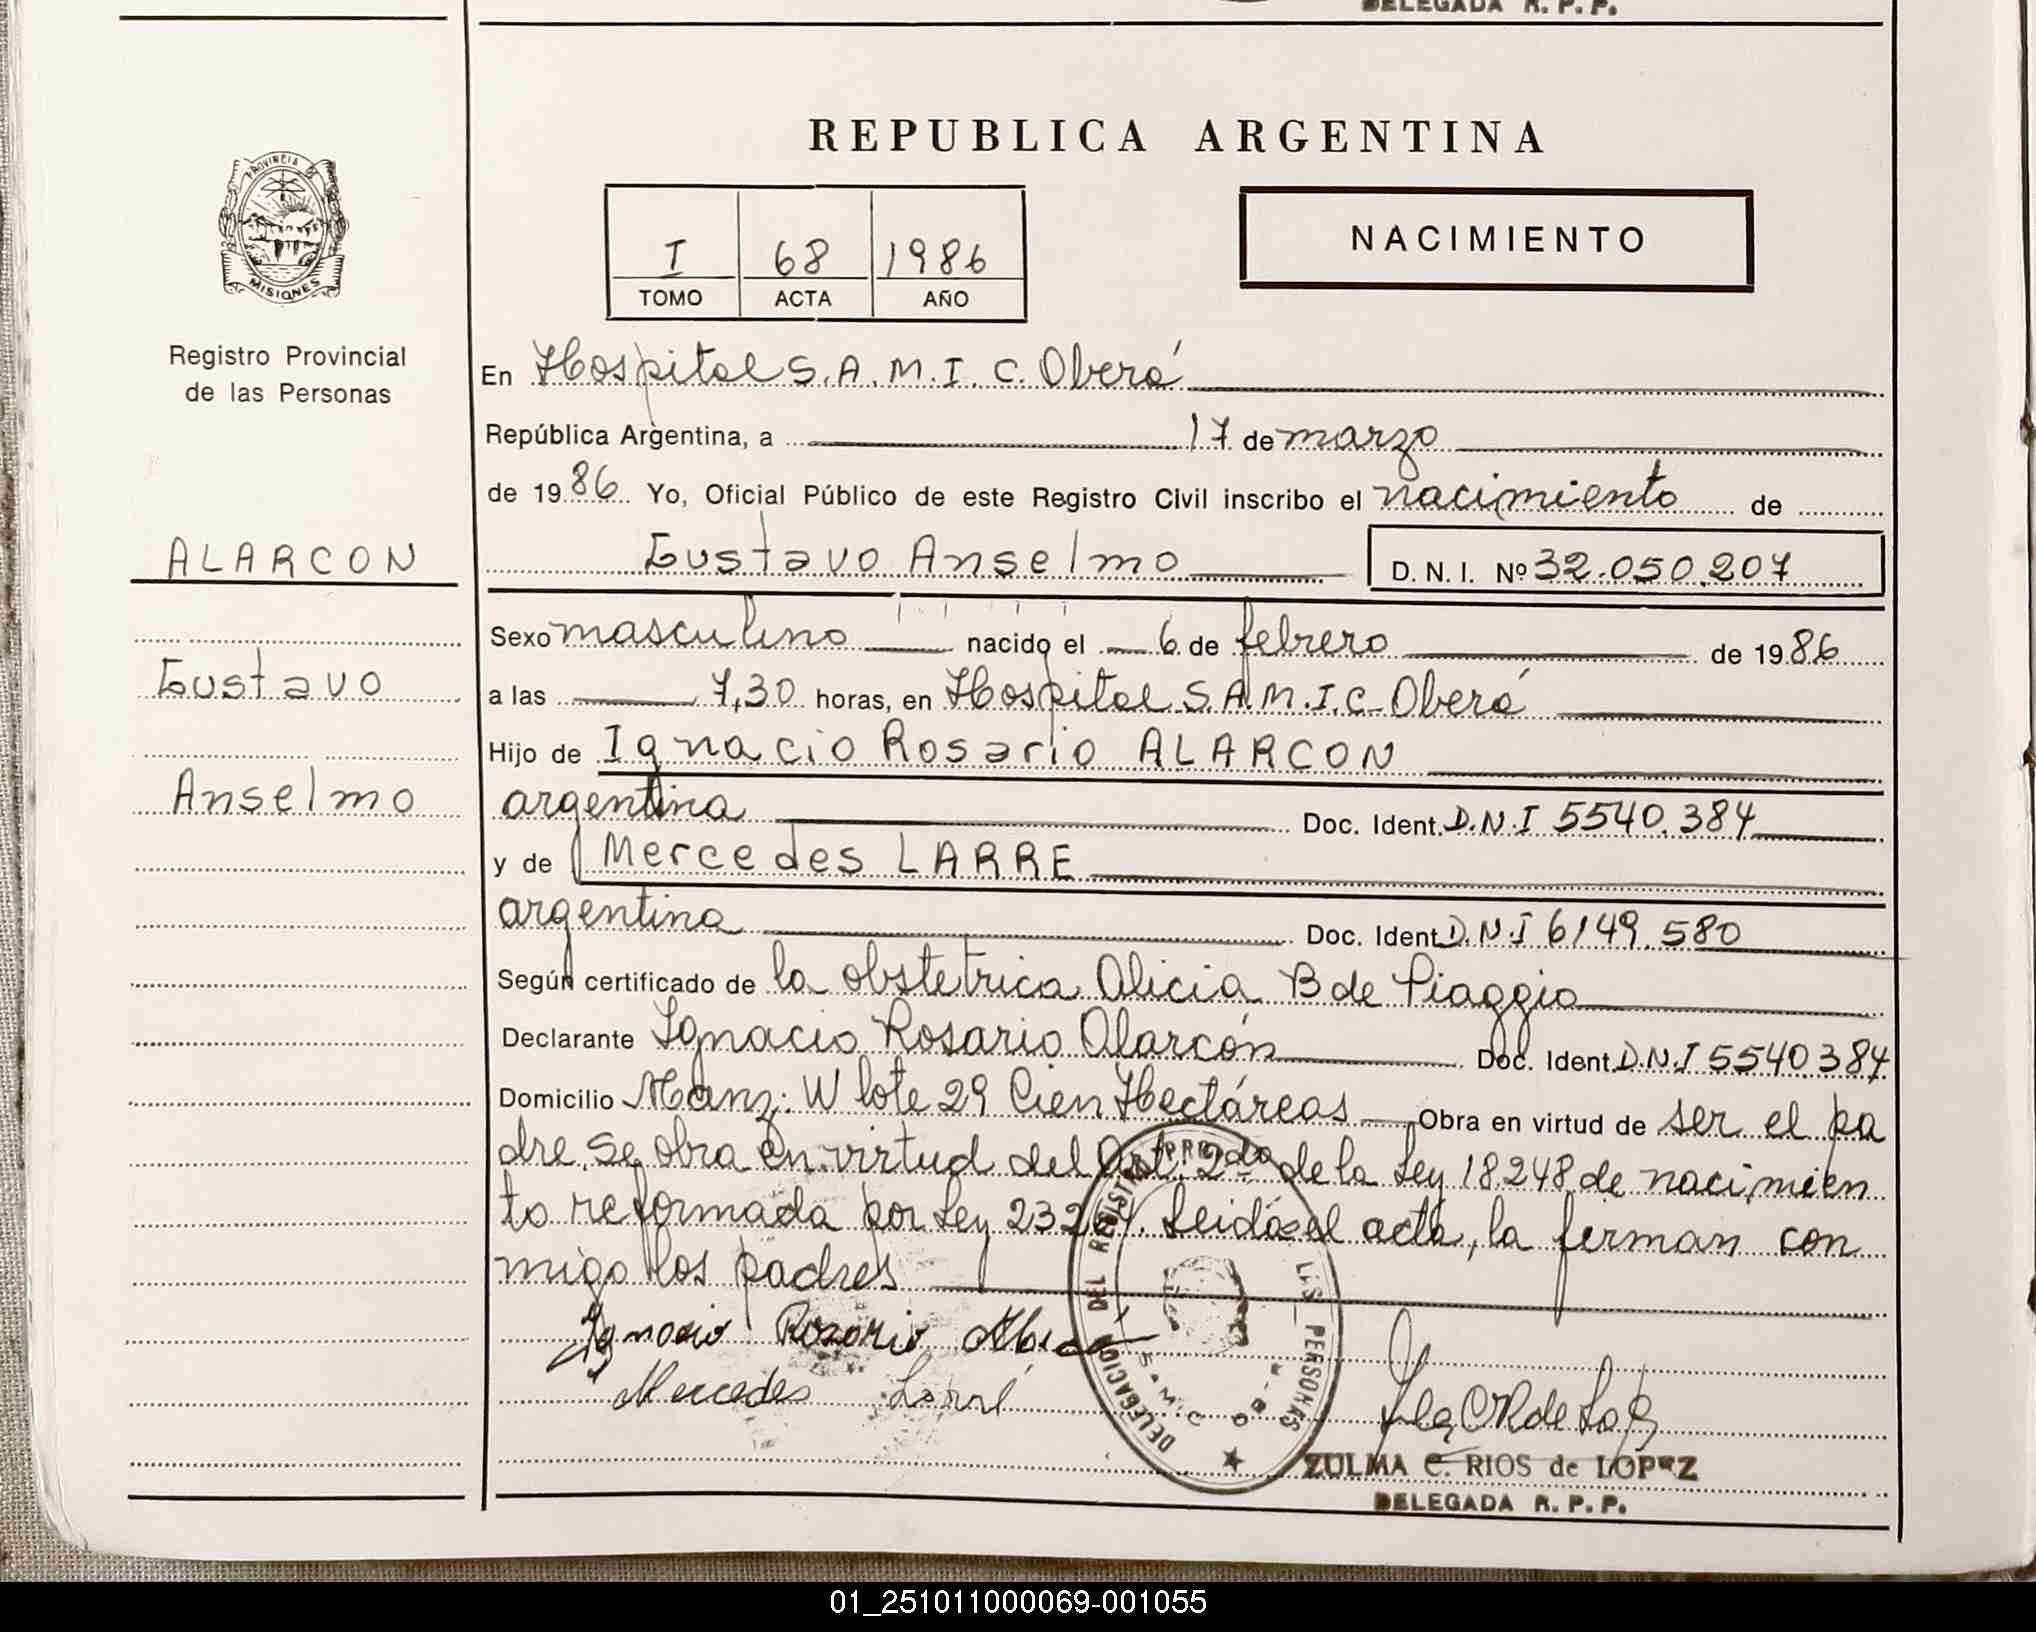 DELEGADA R. P. P.
REPUBLICA ARGENTINA
PROVINCIA DE
MISIONES
I 68 1986
TOMO ACTA AÑO
NACIMIENTO
Registro Provincial
de las Personas
ALARCON
Gustavo
Anselmo
En Hospital S.A.M.I.C. Oberá
República Argentina, a 17 de marzo
de 1986 Yo, Oficial Público de este Registro Civil inscribo el nacimiento de
Gustavo Anselmo D. N. I. Nº 32.050.207
Sexo masculino nacido el 6 de febrero de 1986
a las 7,30 horas, en Hospital S.A.M.I.C. Oberá
Hijo de Ignacio Rosario ALARCON
argentina Doc. Ident. D.N.I 5540.384
y de Mercedes LARRE
argentina Doc. Ident. D.N.I 6149.580
Según certificado de la obstetrica Alicia B de Piaggio
Declarante Ignacio Rosario Alarcón Doc. Ident. D.N.I 5540384
Domicilio Manz: W lote 29 Cien Hectáreas Obra en virtud de ser el pa
dre. Se obra en virtud del Art. 2do de la Ley 18.248 de nacimien
to reformada por Ley Leída el acta, la firman con
migo los padres
Ignacio Rosario
Mercedes Larré
DELEGACION DEL REGISTRO LAS PERSONAS
S.A.M.I.C.
ZULMA C. RIOS de LOPEZ
DELEGADA R. P. P.
01_251011000069-001055